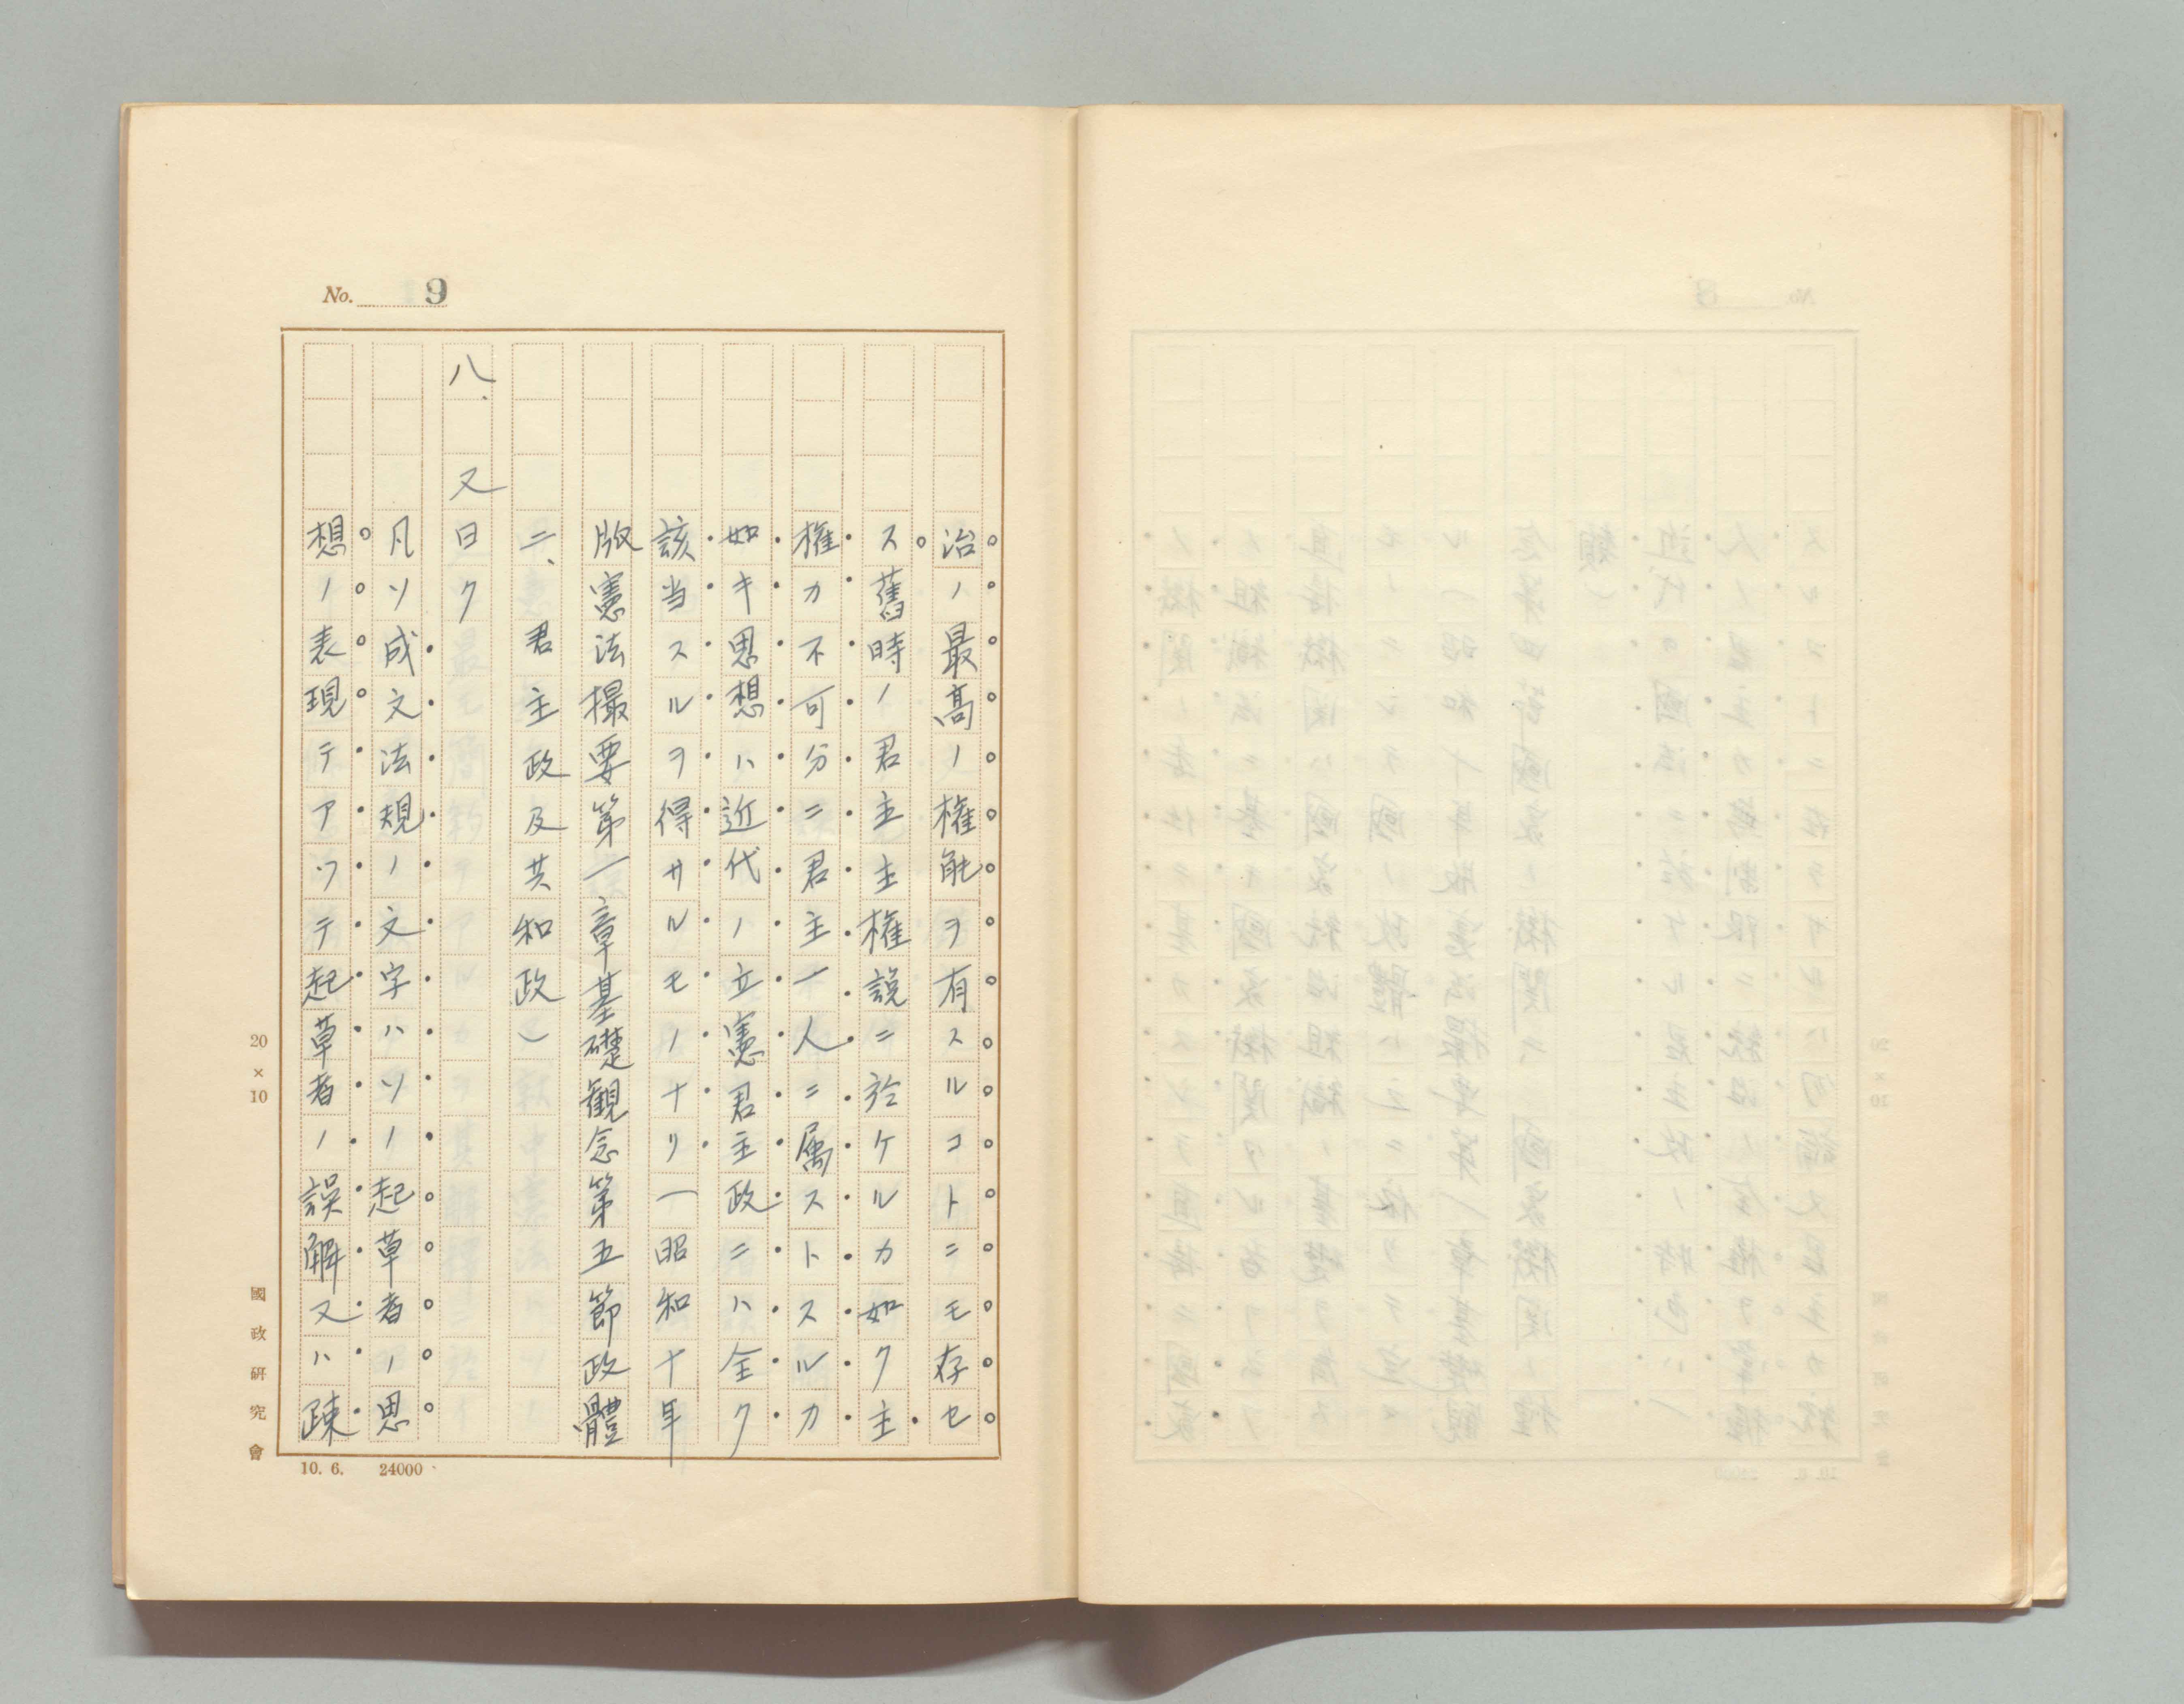 No. 9
治ノ最高ノ権能ヲ有スルコトニモ存セ
ス舊時ノ君主主権説ニ於ケルカ如ク主
権カ不可分ニ君主一人ニ属ストスルカ
如キ思想ハ近代ノ立憲君主政ニハ全ク
該当スルヲ得サルモノナリ(昭和十年
版憲法撮要第一章基礎観念第五節政體
二、君主政及共和政)
八、又曰ク
凡ソ成文法規ノ文字ハソノ起草者ノ思
想ノ表現テアツテ起草者ノ誤解又ハ疎
20×10
國政研究會
10. 6. 24000